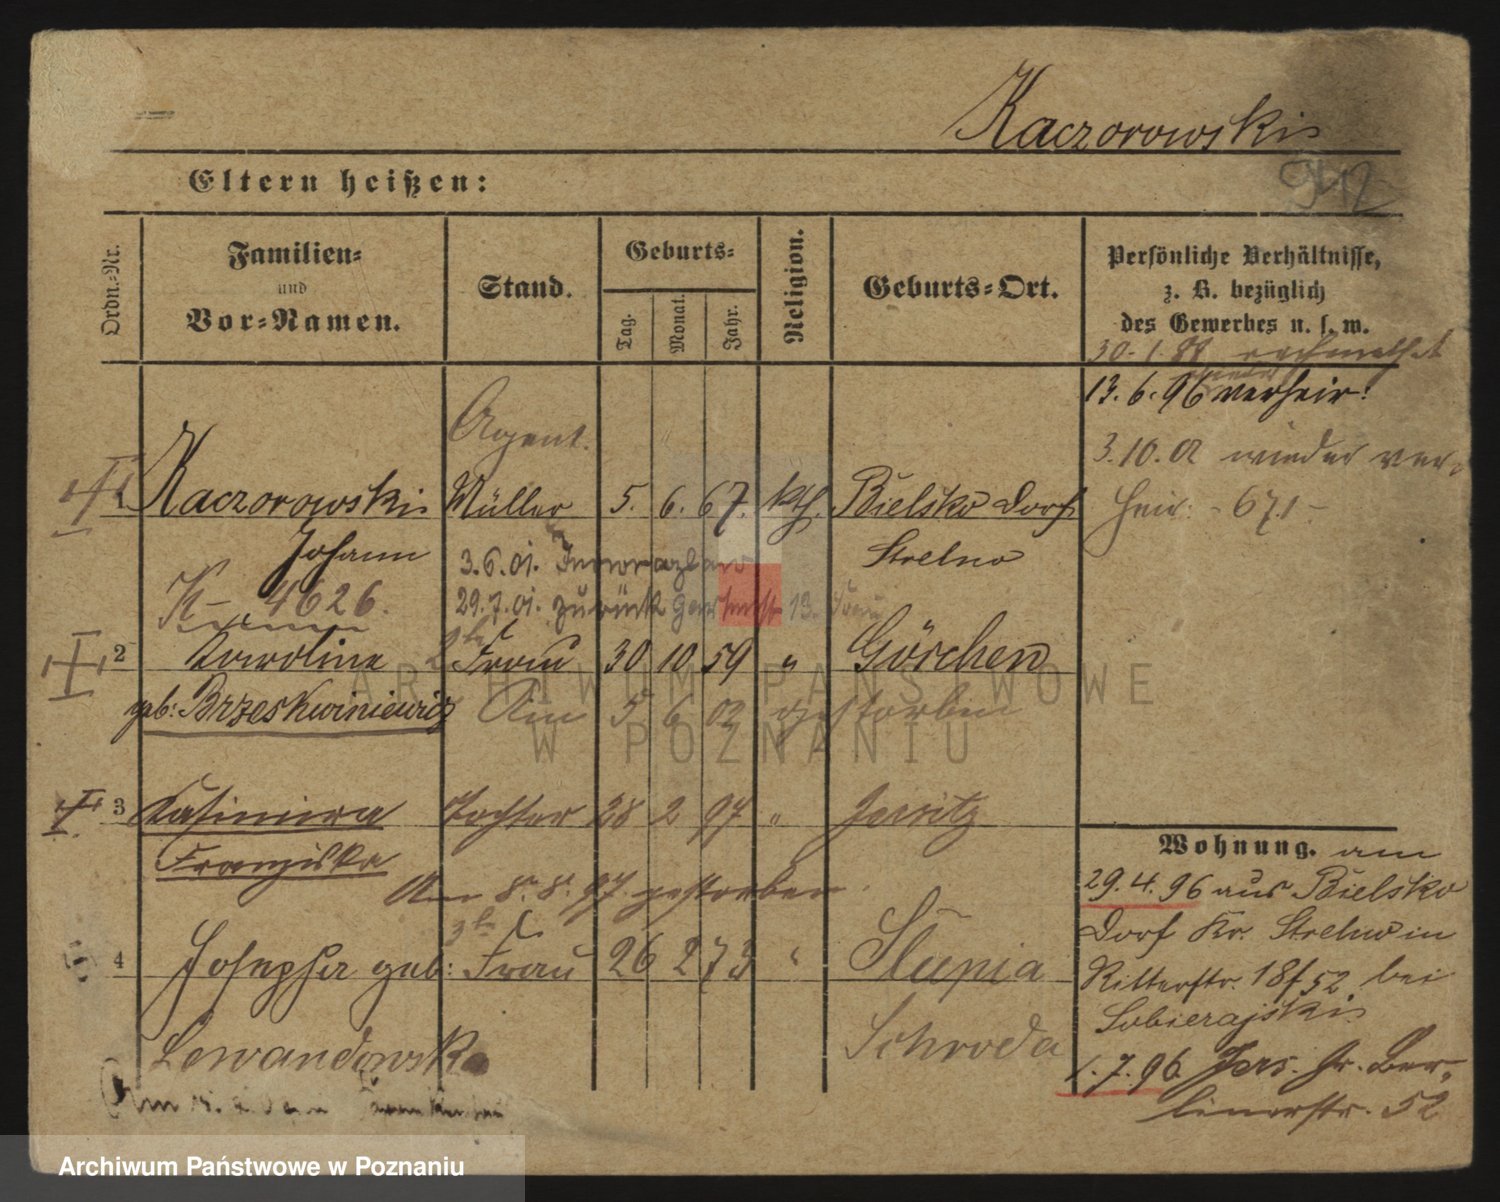 Kaczorowski
Eltern heißen:
Ordn.-Nr.
Familien-
und
Vor-Namen.
Stand.
Geburts-
Tag.
Monat.
Jahr.
Religion.
Geburts-Ort.
Persönliche Verhältnisse,
z. B. bezüglich
des Gewerbes u. s. w.
30. 1. 88
13. 6. 96 verheir:
3. 10. 02 wieder ver-
heir: - 671 -
Agent.
Kaczorowski Müller 5. 6. 67. kth. Bielsko Dorf
Johann Strelno
3.6.01. Inowrazlaw
K- 4626. 29.7.01. zurück 13.
2 Karoline 2te Frau 30 10 59 " Görchen
geb: Brzeskwiniewicz Am 5 6 02 gestorben
3 Kasimira Tochter 28 2 97 " Jersitz
Franziska
Am 8. 8. 97 gestorben.
3te
4 Josepha geb: Frau 26 2 73 " Slupia
Lewandowska Schroda
Wohnung. am
29. 4. 96 aus Bielsko
Dorf Kr. Strelno in
Ritterstr. 18 f 52 bei
Sobierajski
1. 7. 96 Jers. Gr. Ber-
linerstr. 52
ARCHIWUM PAŃSTWOWE
W POZNANIU
Archiwum Państwowe w Poznaniu